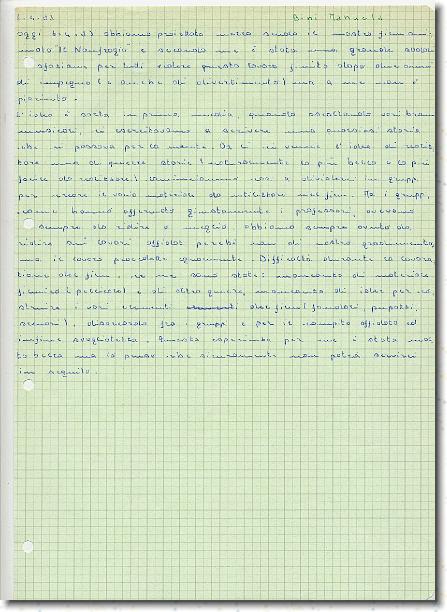 6.4.83 Bini Manuela
Oggi 6.4.83 abbiamo proiettato nella scuola il nostro film ani-
mato "Il Naufragio" e secondo me è stata una grande soddi-
sfazione per tutti vedere questo lavoro finito dopo due anni
di impegno (e anche di divertimento) ma a me non è
piaciuto.
L'idea è nata in prima media, quando ascoltando vari brani
musicali, ci esercitavamo a scrivere una qualsiasi storia
che ci passava per la mente. Da lì ci venne l'idea di realiz-
zare una di quelle storie (naturalmente la più bella e la più
facile da realizzare) cominciammo così a dividerci in gruppi
per creare il vario materiale da utilizzare nel film. Ma i gruppi,
come hanno affermato giustamente i professori, avevano
sempre da ridire o meglio abbiamo sempre avuto da
ridire sui lavori affidati perché non di nostro gradimento,
ma il lavoro procedette ugualmente. Difficoltà durante la lavora-
zione del film, ce ne sono state: mancanza di materiale
filmico (pellicole) e di altro genere, mancanza di idee per co-
struire i vari elementi del film (fondali, pupazzi,
scenari), disaccordo fra i gruppi e per il compito affidato ed
infine svogliatezza. Questa esperienza per me è stata mol-
to bella ma io penso che sicuramente non potrà servirci
in seguito.